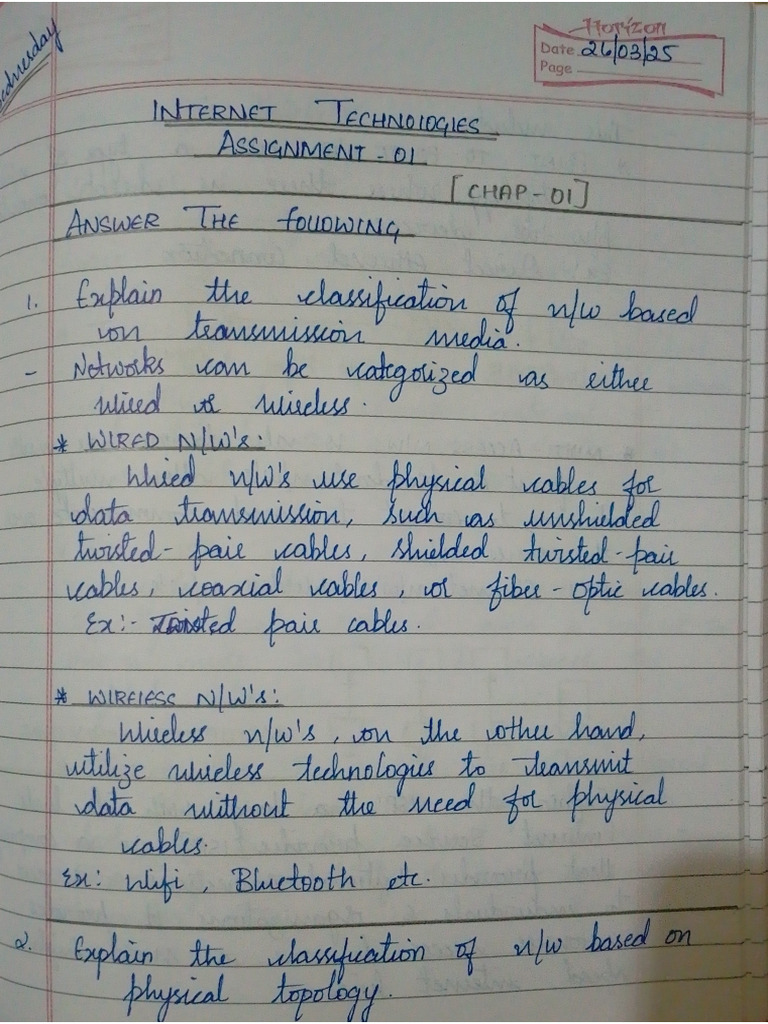 Wednesday
Horizon
Date 26/03/25
Page
INTERNET TECHNOLOGIES
ASSIGNMENT - 01
[CHAP - 01]
ANSWER THE FOLLOWING
1. Explain the classification of n/w based
on transmission media.
- Networks can be categorized as either
wired or wireless.
* WIRED N/W's :
Wired n/w's use physical cables for
data transmission, such as unshielded
twisted - pair cables, shielded twisted - pair
cables, coaxial cables, or fiber - optic cables.
Ex:- Twisted pair cables.
* WIRELESS N/W's :
Wireless n/w's, on the other hand,
utilize wireless technologies to transmit
data without the need for physical
cables.
Ex: Wifi, Bluetooth etc.
2. Explain the classification of n/w based on
physical topology.